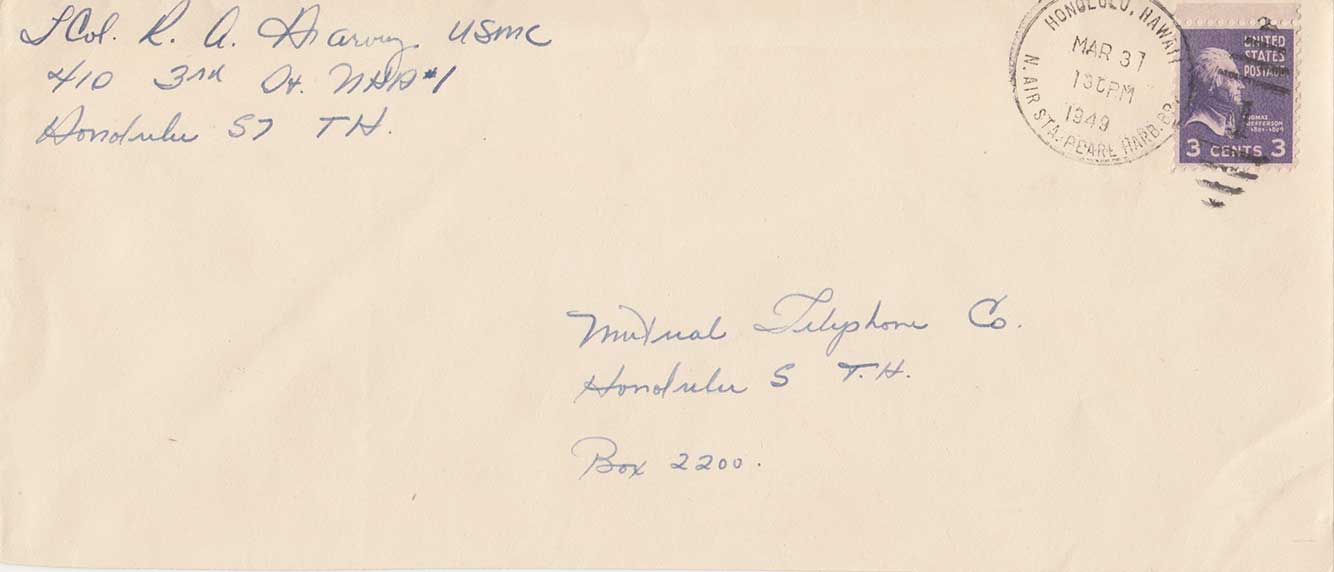 LCol. R. A. Harvey USMC
410 3rd St. NHA #1
Honolulu 57 TH.
HONOLULU, HAWAII
MAR 31
130PM
1949
N. AIR STA. PEARL HARB. BR.
UNITED
STATES
POSTAGE
THOMAS
JEFFERSON
1801-1809
3 CENTS 3
Mutual Telephone Co.
Honolulu S T.H.
Box 2200.